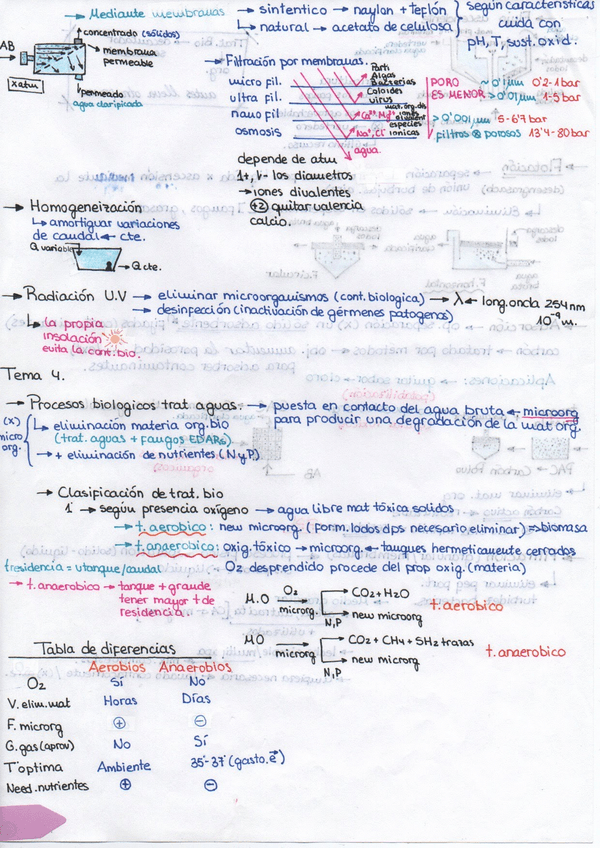 → Mediante membranas → sintentico → naylon + teflón
↳ natural → acetato de celulosa
según características
cuida con
pH, T, sust. oxid.
AB
concentrado (sólidos)
membrana
permeable
xatm
permeado
agua claripicada
→ Filtración por membranas.
micro fil.
ultra fil.
nano fil
osmosis
Parti
Algas
Bacterias
Coloides
virus
mat.org.dis
iones
divalent
Ca²⁺ Mg²⁺
especies
ionicas
Na⁺, Cl⁻
agua
PORO
ES MENOR
~ 0'1µm 0'2-1bar
> 0'01µm 1-5 bar
> 0'001µm 5-6'7 bar
piltros ⊗ porosos 13'4-80 bar
depende de atm
1+, V- los diametros
→ iones divalentes
+2 quitar valencia
calcio.
→ Homogeneización
↳ amortiguar variaciones
de caudal ← cte.
Q variable
→ Q cte.
→ Radiación U.V → eliminar microorganismos (cont. biologica) → λ ← long. onda 254 nm
→ desinfección (inactivación de gérmenes patogenos)
10⁻⁹ m.
↳ la propia
insolación
evita la cont. bio.
Tema 4.
→ Procesos biologicos trat aguas. → puesta en contacto del agua bruta ← microorg
para producir una degradación de la mat org.
(x)
micro
org.
↳ eliminación materia org. bio
(trat. aguas + fangos EDARs)
→ + eliminación de nutrientes (N y P)
→ Clasificación de trat. bio
1º → según presencia oxígeno → agua libre mat tóxica solidos
→ t. aerobico: new microorg. (form. lodos dps necesario eliminar) ⇒ biomasa
→ t. anaerobico: oxig. tóxico → microorg. ← tanques hermeticamente cerrados
t residencia = v tanque/caudal
· O₂ desprendido procede del prop oxig. (materia)
→ t. anaerobico → tanque + grande
tener mayor t de
residencia.
M.O → O₂ microorg. → CO₂ + H₂O
N,P → new microorg
t. aerobico
MO → microorg → CO₂ + CH₄ + SH₂ trazas
N,P → new microorg
t. anaerobico
Tabla de diferencias
Aerobios Anaerobios
O₂ Sí No
V. elim. mat Horas Días
F. microrg ⊕ ⊖
G. gas (aprov) No Sí
Tº optima Ambiente 35º-37º (gasto. e⃗)
Need. nutrientes ⊕ ⊖